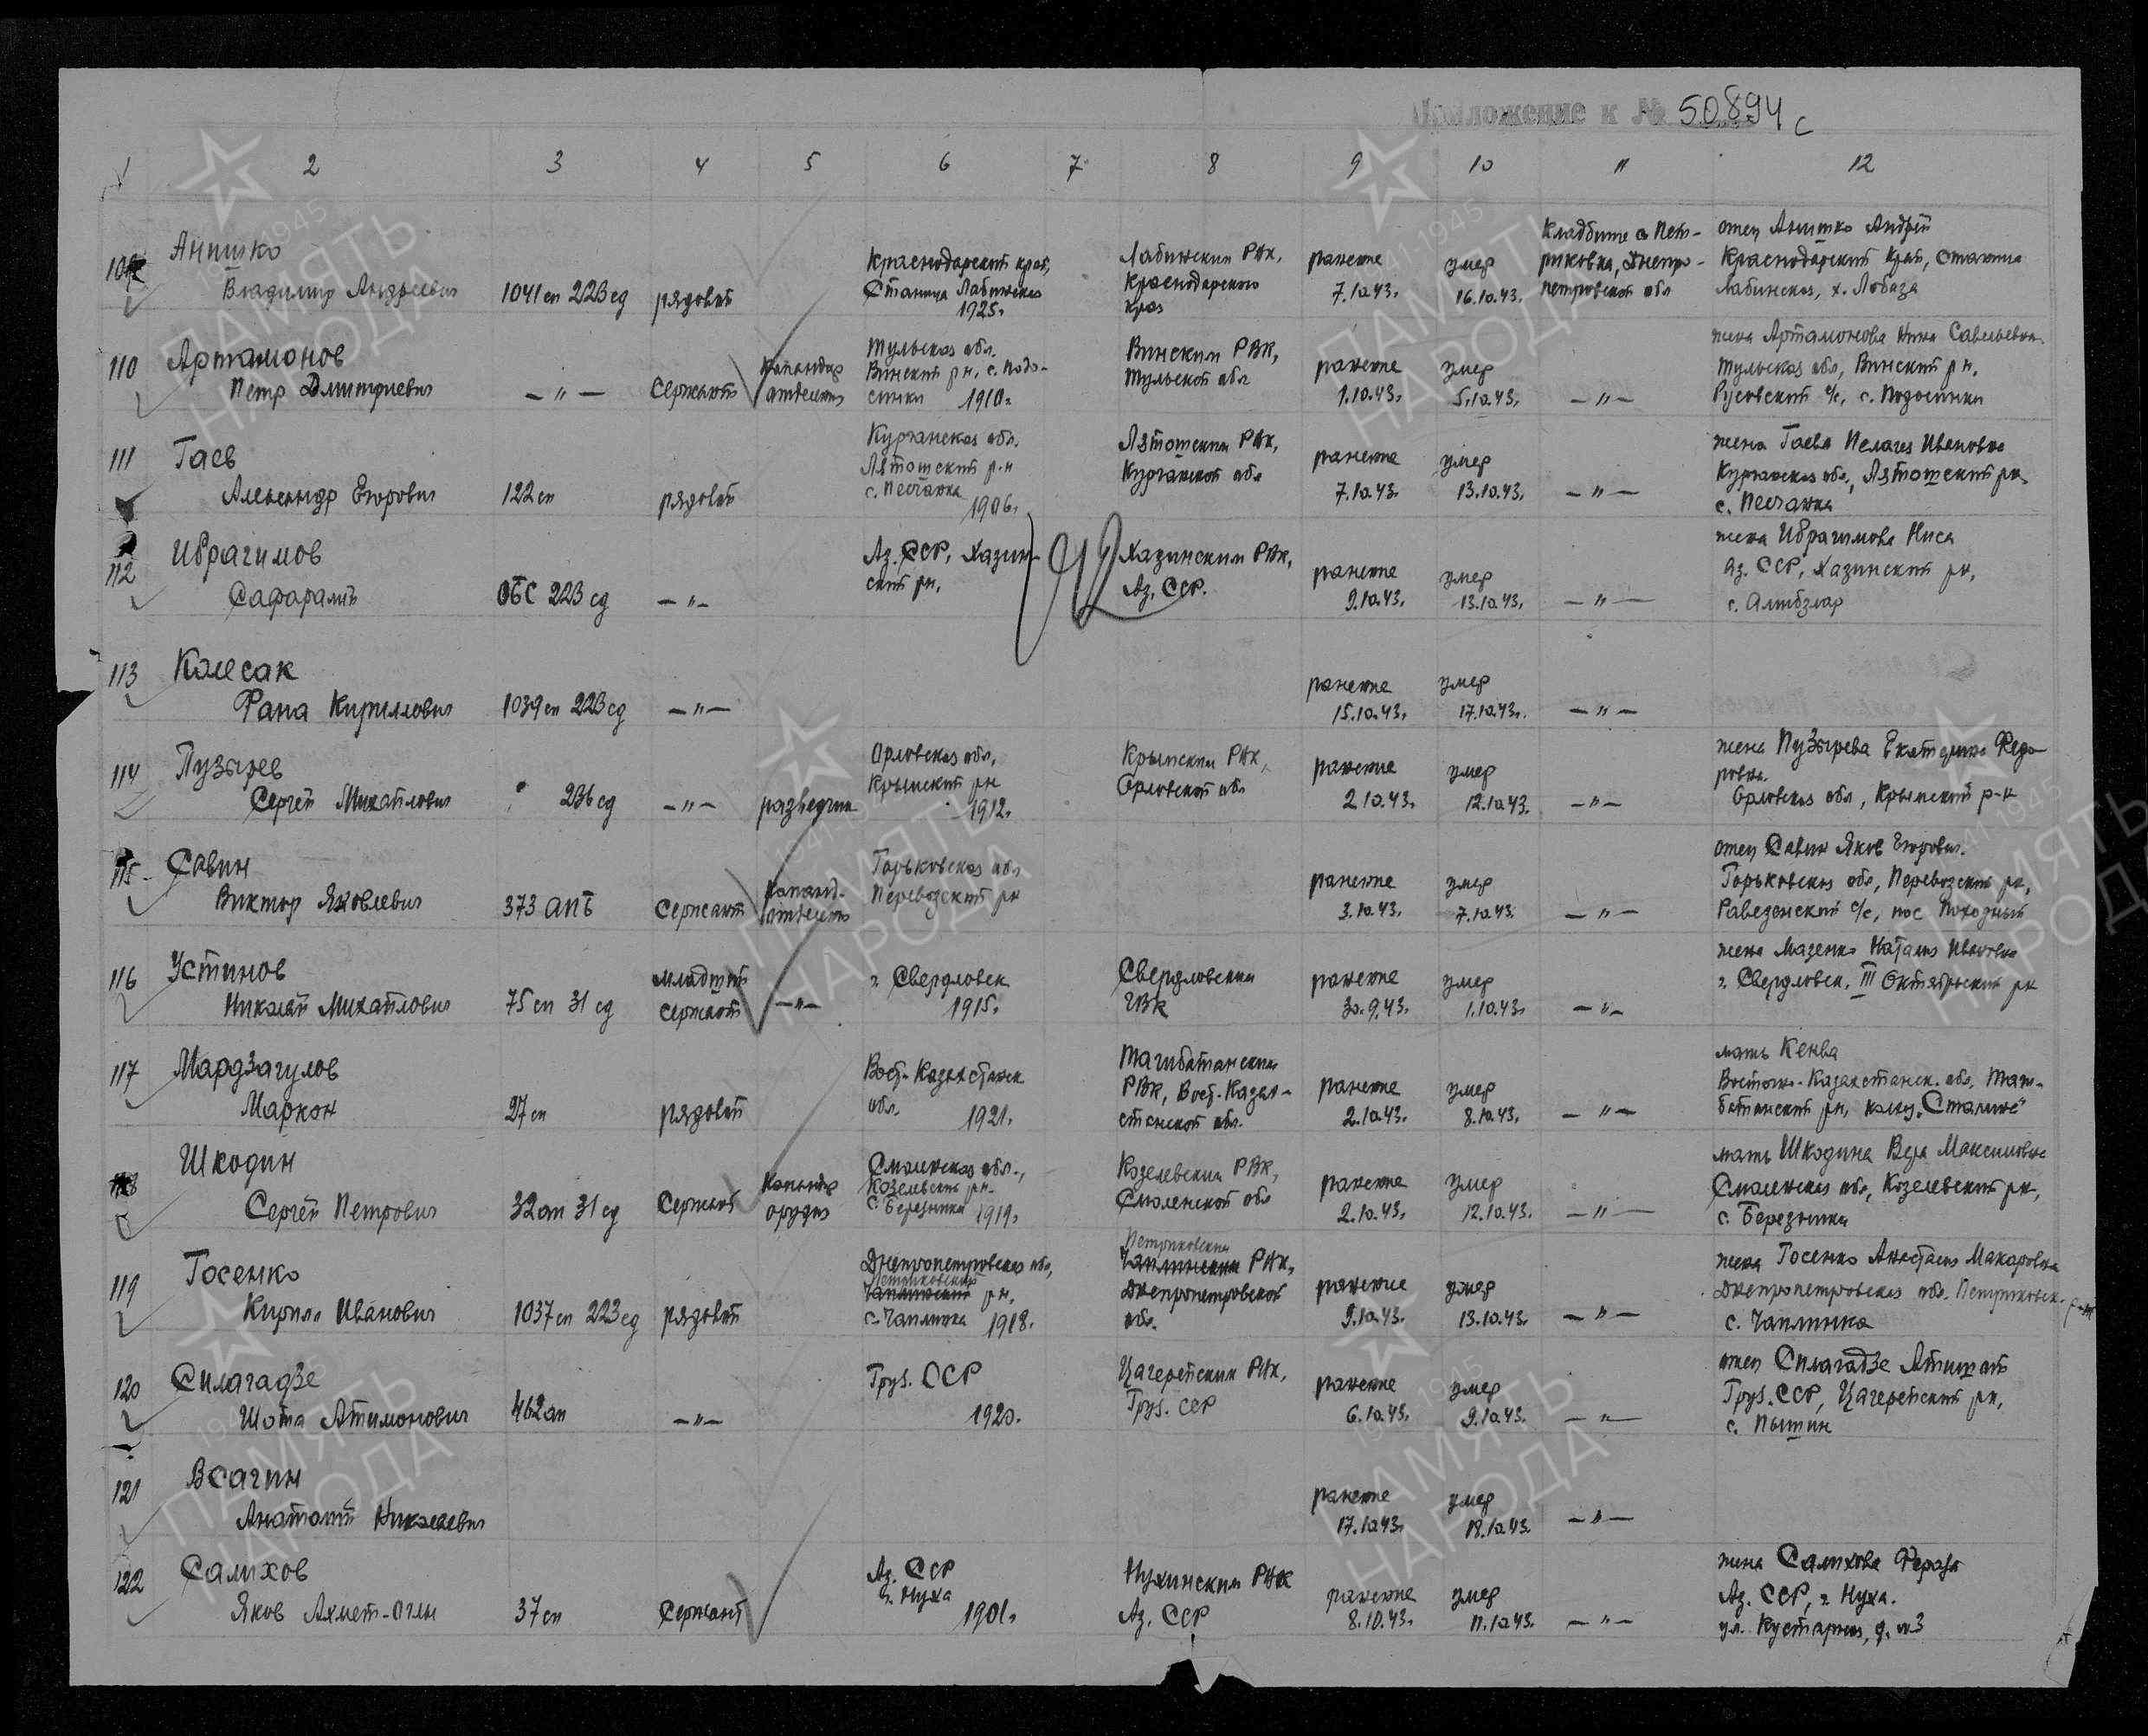 Приложение к № 50894 с
1 2 3 4 5 6 7 8 9 10 11 12
109 Анишко
Владимир Андреевич
1041 сп 223 сд
рядовой
Краснодарский край,
Станица Лабинская
1925.
Лабинским РВК,
Краснодарского
края
ранение
7.10.43.
умер
16.10.43.
Кладбище с Пет-
риковка, Днепро-
петровской обл
отец Анишко Андрей
Краснодарский край, станица
Лабинская, х. Лобаза
110 Артамонов
Петр Дмитриевич
— " —
Сержант
Командир
отделения
Тульская обл.
Винский рн, с. Подо-
синки 1910.
Винским РВК,
Тульской обл
ранение
1.10.43.
умер
5.10.43.
— " —
жена Артамонова Нина Савельевна
Тульская обл, Винский рн,
Русовский с/с, с. Подосинки
111 Гаев
Александр Егорович
122 сп
рядовой
Курганская обл.
р-н
с. Песчанка
1906.
РВК,
Курганской обл
ранение
7.10.43.
умер
13.10.43.
— " —
жена Гаева Пелагея Ивановна
Курганская обл, рн
с. Песчанка
112 Ибрагимов
Сафарали
ОБС 223 сд
— " —
Аз. ССР, Хазин-
ский рн.
Хазинским РВК,
Аз. ССР.
ранение
9.10.43.
умер
13.10.43.
— " —
жена Ибрагимова Ниса
Аз. ССР, Хазинский рн,
с.
113 Колесак
Рана Кириллович
1039 сп 223 сд
— " —
ранение
15.10.43.
умер
17.10.43.
— " —
114 Пузырев
Сергей Михайлович
236 сд
— " —
разведчик
Орловская обл,
Крымский рн
1912.
Крымским РВК,
Орловской обл
ранение
2.10.43.
умер
12.10.43.
— " —
жена Пузырева Екатерина Федо-
ровна.
Орловская обл, Крымский р-н
115 Савин
Виктор Яковлевич
373 АПБ
Сержант
Команд.
отделения
Горьковская обл
Перевозский рн
ранение
3.10.43.
умер
7.10.43.
— " —
отец Савин Яков Егорович.
Горьковская обл, Перевозский рн,
с/с, пос Походный
116 Устинов
Николай Михайлович
75 сп 31 сд
младший
сержант
— " —
г. Свердловск
1915.
Свердловским
ГВК
ранение
30.9.43.
умер
1.10.43.
— " —
жена Мазенко Наталия Ивановна
г. Свердловск, III Октябрьский рн
117 Мардзагулов
Маркон
27 сп
рядовой
Вост-Казахстанск
обл. 1921.
РВК, Вост-Казах-
станской обл.
ранение
2.10.43.
умер
8.10.43.
— " —
мать Кенва
Восточно-Казахстанск. обл,
рн, колх. „Сталина"
118 Шкодин
Сергей Петрович
32 ап 31 сд
Сержант
Командир
орудия
Смоленская обл.,
Козелевский рн.
с. Березники 1919.
Козелевским РВК,
Смоленской обл
ранение
2.10.43.
умер
12.10.43.
— " —
мать Шкодина Вера Максимовна
Смоленская обл, Козелевский рн,
с. Березники
119 Госенко
Кирилл Иванович
1037 сп 223 сд
рядовой
Днепропетровская обл,
Петриковский
Чаплинский рн,
с. Чаплинка 1918.
Петриковским
Чаплинским РВК,
Днепропетровской
обл.
ранение
9.10.43.
умер
13.10.43.
— " —
жена Госенко Анастасия Макаровна
Днепропетровская обл. Петриковск. р-н
с. Чаплинка
120 Силагадзе
Шота Атимонович
462 ап
— " —
Груз. ССР
1920.
Цагерейским РВК,
Груз. ССР
ранение
6.10.43.
умер
9.10.43.
— " —
отец Силагадзе
Груз. ССР, Цагерейский рн,
с.
121 Всагин
Анатолий Николаевич
ранение
17.10.43.
умер
18.10.43.
— " —
122 Салихов
Яков Ахмет-Оглы
37 сп
Сержант
Аз. ССР
г. Нуха
1901.
Нухинским РВК
Аз. ССР
ранение
8.10.43.
умер
11.10.43.
— " —
жена Салихова
Аз. ССР, г. Нуха.
ул. Кустарная, д. №3
1941 1945
ПАМЯТЬ
НАРОДА